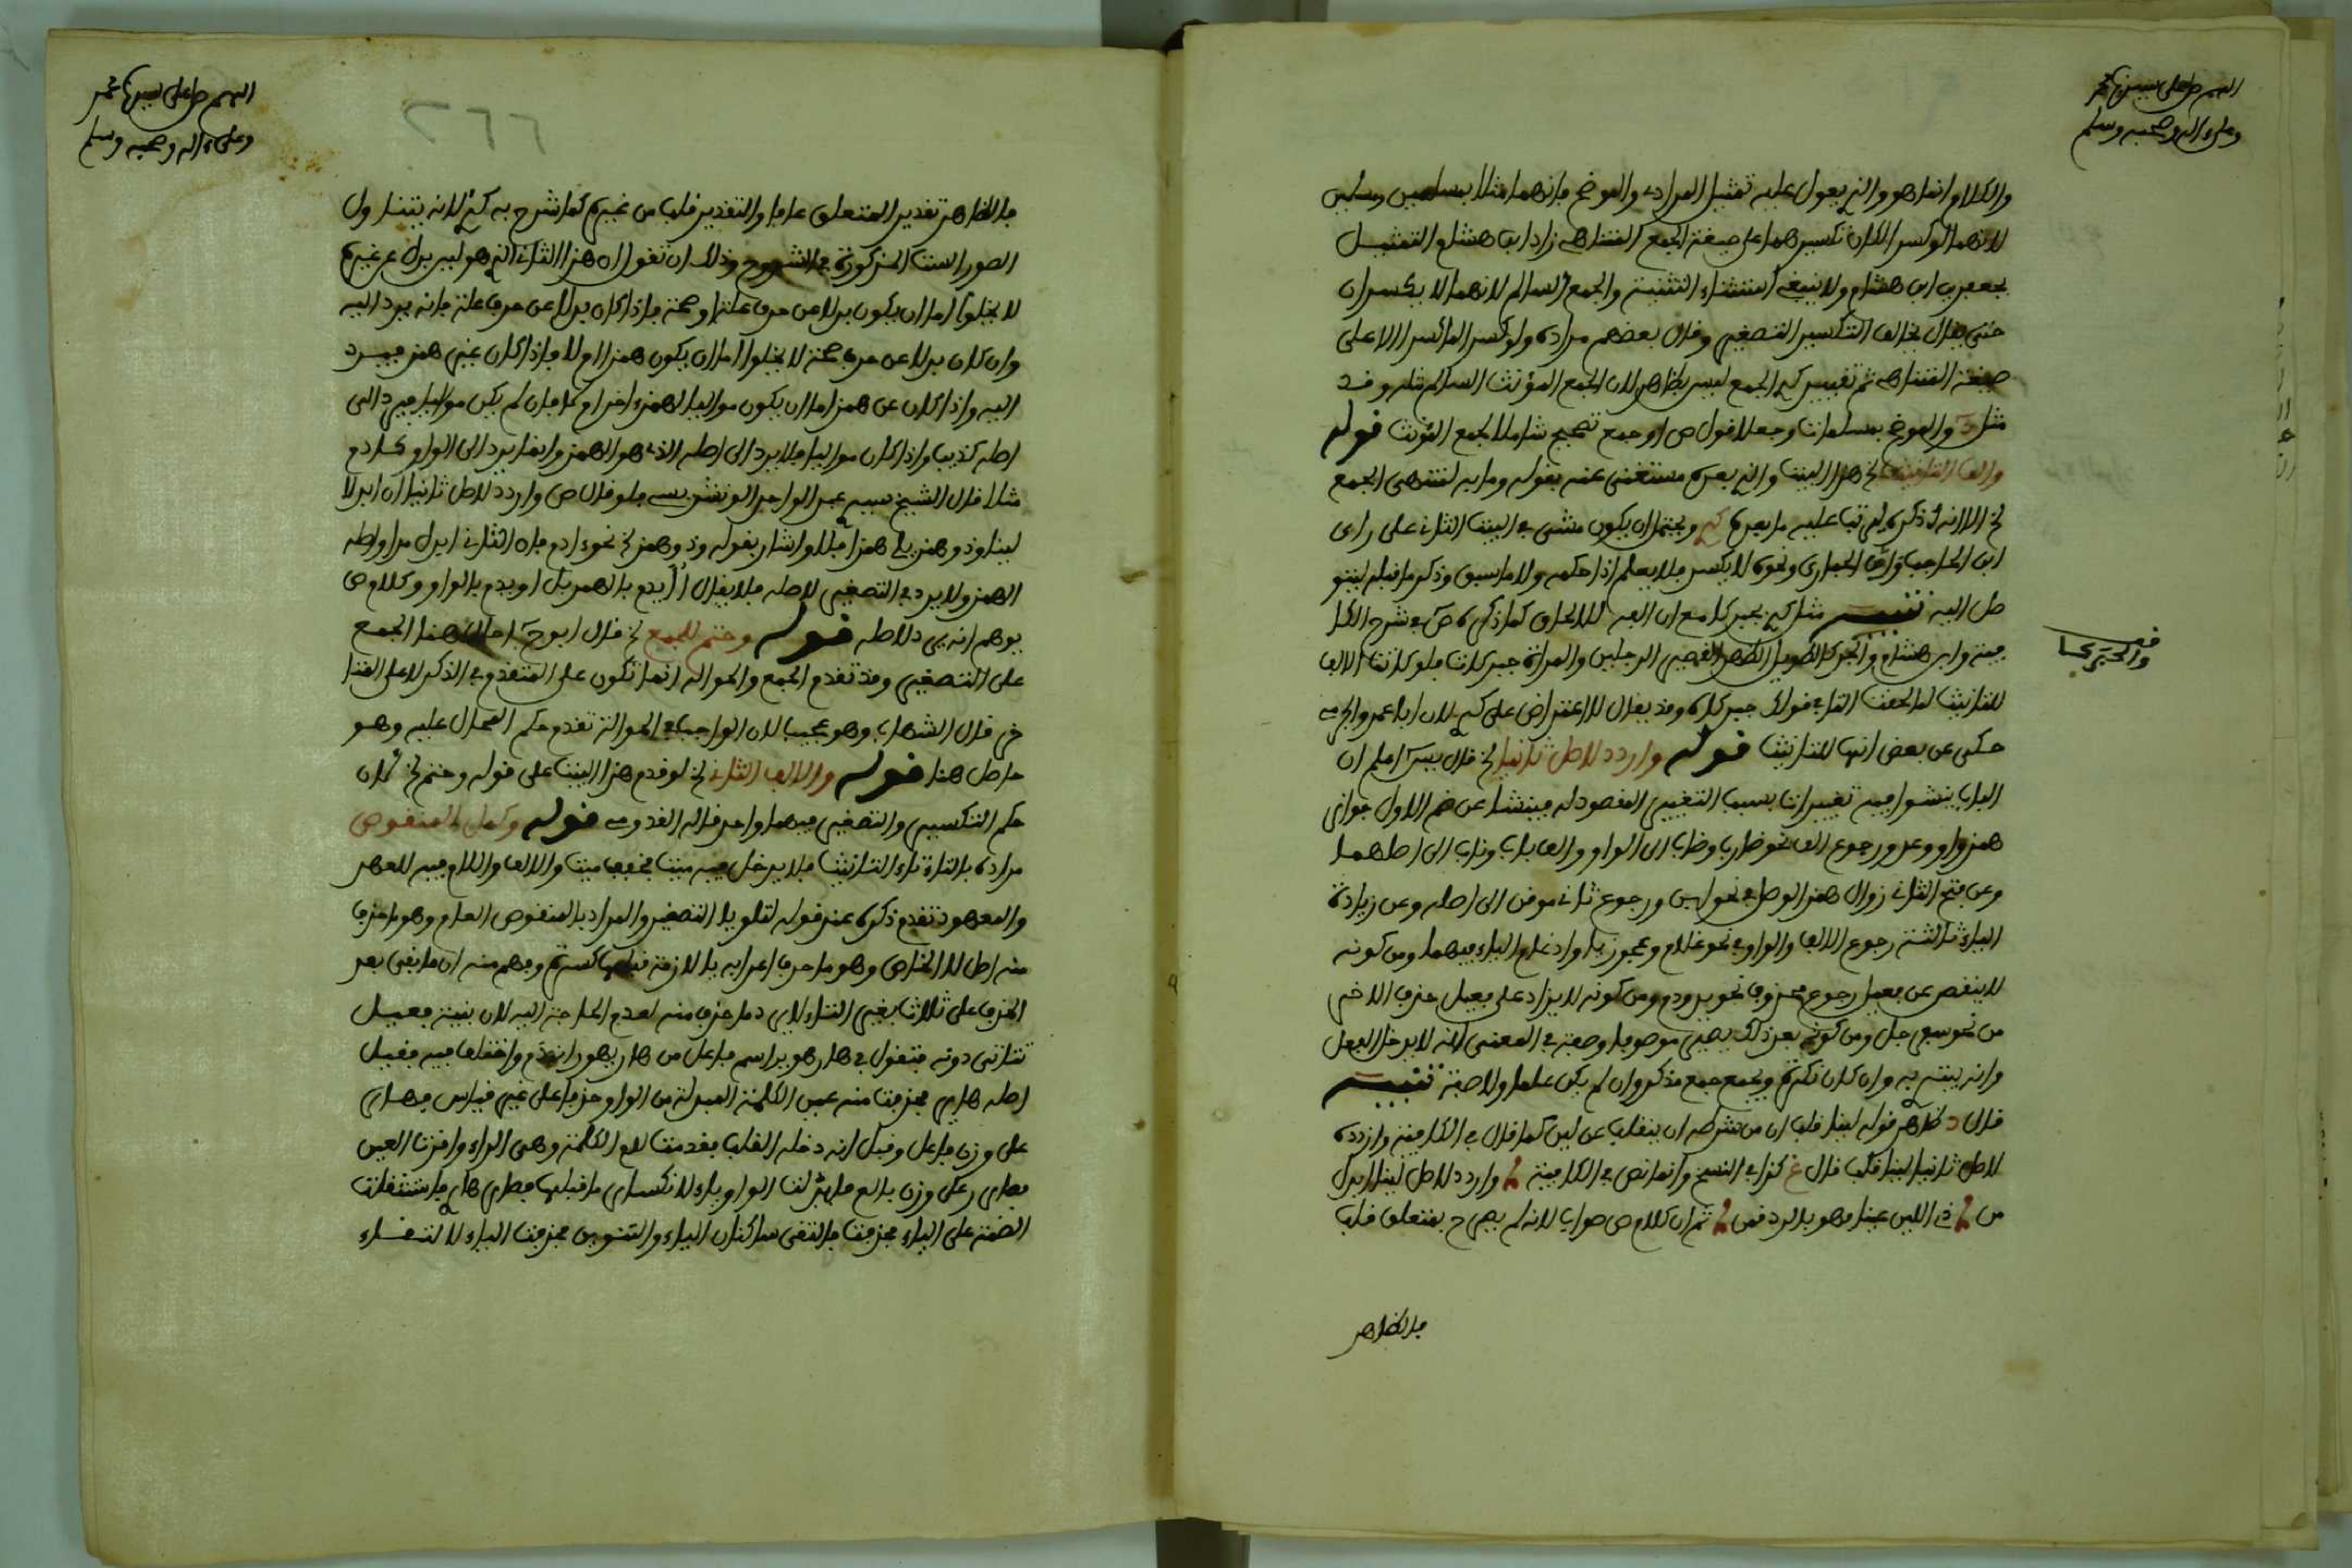 اللهم صل على سيدنا محمد
وعلى ءاله وصحبه وسلم
والكلام انما هو والذي يعول عليه تمثيل المرادي والموضح فانهما مثلا بمسلمين
لانهما لو كسرا لكان تكسيرهما على صيغة الجمع المتناهي زاد ابن هشام التمثيل
بجعفرين ابن هشام ولا ينبغي استثناء التثنية والجمع السالم لانهما لا يكسران
حتى يقال يخالف التكسير التصغير وقال بعضهم مراده ولو كسرا لما كسرا الا على
صيغة المتناهي ثم تقييس الجمع ليس بظاهر لان الجمع المؤنث السالم مثله وقد
مثل والموضح بمسلمات وجعلا قول ص او جمع تصحيح شاملا لجمع المؤنث قوله
والف التانيث الخ هذا البيت والذي بعده مستغنى عنه بقوله وما به لمنتهى الجمع
الخ الا انه ذكره ليرتب عليه ما بعده ويحتمل ان يكون مشى في البيت الثاني على راي
ابن الحاجب ونحوه لا يكسر فلا يعلم اذا حكمه ولا ما سبق وذكر ما قبله ليتو
صل اليه تنبيه مثل بحبركا مع ان الفه للالحاق كما ذكره ص في شرح الكا
فية وابن هشام والحبركا الطويل الظهر القصير الرجلين والمراة حبركات فلو كانت الالف
للتانيث لما لحقت التاء في قولك حبركاة وقد يقال لا اعتراض على لان ابا عمر والجرمي
حكى عن بعض انها للتانيث قوله واردد لاصل ثانيا الخ قال يس اعلم ان
الباب ينشوا فيه تغييرات بسبب التغيير المقصود له فينشا عن ضم الاول جواز
همز واو وعد ورجوع الف نحو ضارب وضراب الى الواو والف باب وناب الى اصلهما
وعن فتح الثاني زوال همز الوصل في نحو ابن ورجوع ثاني موقن الى اصله وعن زيادة
الياء ثالثة رجوع الالف والواو في نحو غلام وعجوز ياء وادغام الياء فيهما ومن كونه
لا ينقص عن فعيل رجوع محذوف نحو يد ودم ومن كونه لا يزاد على فعيعل حذف الاخير
من نحو سفرجل ومن كونه بعد ذلك يصير موصوفا وصفة في المعنى انه لا يدخل الفعل
وانه يبتدا به وان كان نكرة ويجمع جمع مذكر وان لم يكن علما ولا صفة تنبيه
قال د ظاهر قوله لينا قلب ان من شرطه ان ينقلب عن لين كما قال في الكافية واردده
لاصل ثانيا لينا قلب قال غ كذا في النسخ وانما نص في الكافية واردد لاصل لينا ابدل
من ذي اللين عينا فهو بالرد قمن ثم ان كلام ص صواب لانه لم يصرح بمتعلق قلب
فالظاهر
اللهم صل على سيدنا محمد
وعلى ءاله وصحبه وسلم
٢٦٦
فالظاهر تقدير المتعلق عاما والتقدير قلب من غيره كما شرح به لانه يتناول
الصور الست المذكورة في الشروح وذلك ان تقول ان هذا الثاني الذي هو لين بدل عن غيره
لا يخلوا اما ان يكون بدلا عن حرف علة او صحة فاذا كان بدلا عن حرف علة فانه يرد اليه
وان كان بدلا عن حرف صحة لا يخلوا اما ان يكون همزا او لا فاذا كان غير همز فيرد
اليه واذا كان عن همز اما ان يكون مواليا لهمز اخر او لا فان لم يكن مواليا فيرد الى
اصله كذيب واذا كان مواليا فلا يرد الى اصله الذي هو الهمز وانما يرد الى الواو كادم
مثلا قال الشيخ سيدي عبد الواحد الونشريسي فلو قال ص واردد لاصل ثانيا ان ابدلا
لينا وذو همز يلي همزا فلا واشار بقوله وذو همز الخ نحو ءادم فان الثاني ابدل مدا واصله
الهمز ولا يرد في التصغير لاصله فلا يقال اايدم بالهمز بل اويدم بالواو وكلام ص
يوهم انه يرد لاصله قوله وحتم للجمع الخ قال ابو ح احال هنا الجمع
على التصغير وقد تقدم الجمع والحوالة انما تكون على المتقدم في الذكر لا على المتا
خر قال الشهاب وهو عجيب لان الواجب في الحوالة تقدم حكم المحال عليه وهو
حاصل هنا قوله والالف الثاني الخ لو قدم هذا البيت على قوله وحتم الخ لان
حكم التكسير والتصغير فيهما واحد قاله القدومي قوله وكمل المنقوص
مراده بالتاء تاء التانيث فلا يدخل فيه ميت مخفف ميت والالف واللام فيه للعهد
والمعهود تقدم ذكره عند قوله لتلو يا التصغير والمراد بالمنقوص العام وهو ما حذف
منه اصل لا الخاص وهو ما حرف اعرابه ياء لازمة قبلها كسرة وفهم منه ان ما بقي بعد
الحذف على ثلاث بغير التاء لا يرد ما حذف منه لعدم الحاجة اليه لان بنية فعيل
تتاتى دونه فتقول في هار هوير اسم فاعل من هار يهور انهدم واختلف فيه فقيل
اصله هاير فحذفت منه عين الكلمة المبدلة من الواو حذفا على غير قياس فهار
على وزن فاعل وقيل انه دخله القلب فقدمت لام الكلمة وهي الراء واخرت العين
فصار على وزن فالع فابدلت الواو ياء لانكسار ما قبلها فصار هاري فاستثقلت
الضمة على الياء فحذفت فالتقى ساكنان الياء والتنوين فحذفت الياء لالتقاء